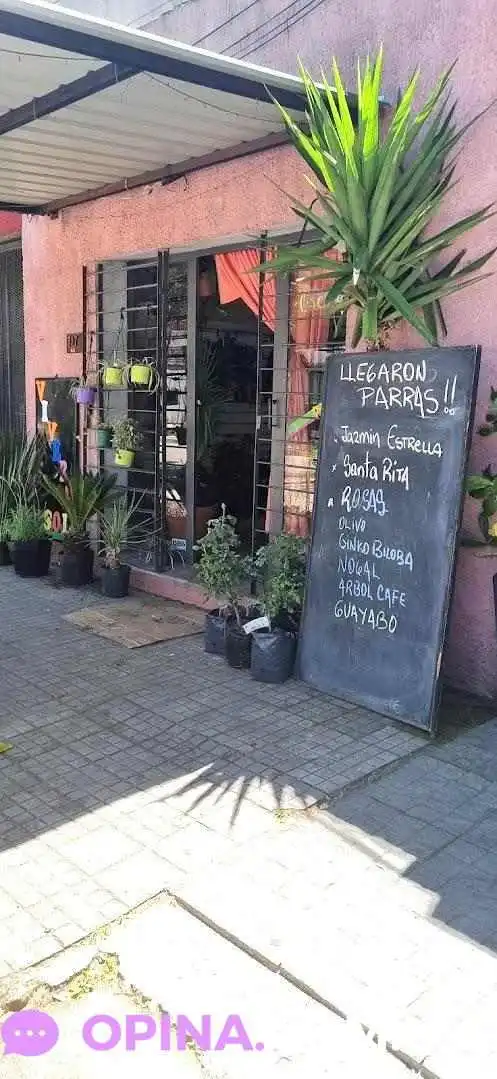 LLEGARON
PARRAS!!
. Jazmin ESTRELLA
* Santa RITA
* ROSAS
OLIVO
GINKO BILOBA
NOGAL
ARBOL CAFE
GUAYABO
OPINA.